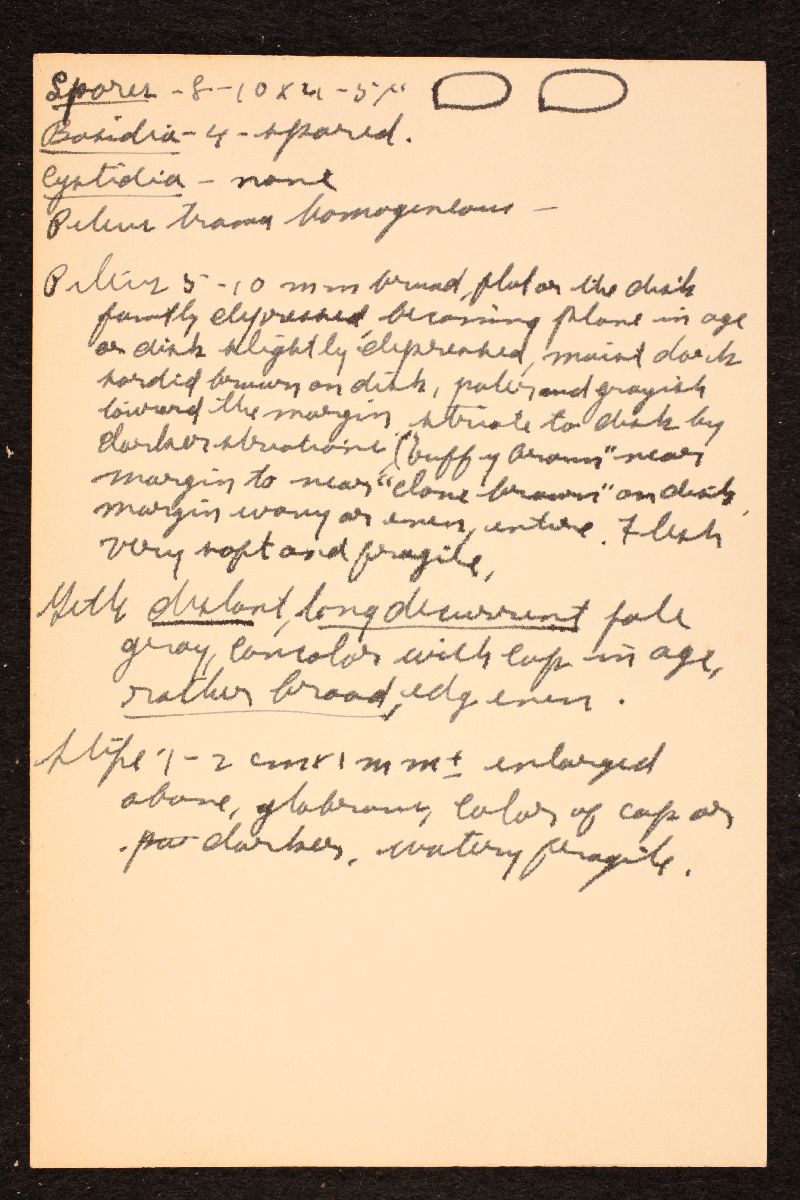 Spores - 8-10 x 4-5 µ
Basidia - 4-spored.
Cystidia - none
Pileus trama homogeneous -
Pileus 5-10 mm broad, flat or the disk
faintly depressed, becoming plane in age
or disk slightly depressed, moist dark
sordid brown on disk, paler and grayish
toward the margin, striate to disk by
darker striations, ("buffy brown" near
margin to near "clove brown" on disk,
margin wavy or even, entire. Flesh
very soft and fragile,
Gills distant, long decurrent pale
gray, concolor with cap in age,
rather broad, edg even.
Stipe 1-2 cm x 1 mm ± enlarged
above, glabrous, color of cap or
darker, watery fragile.